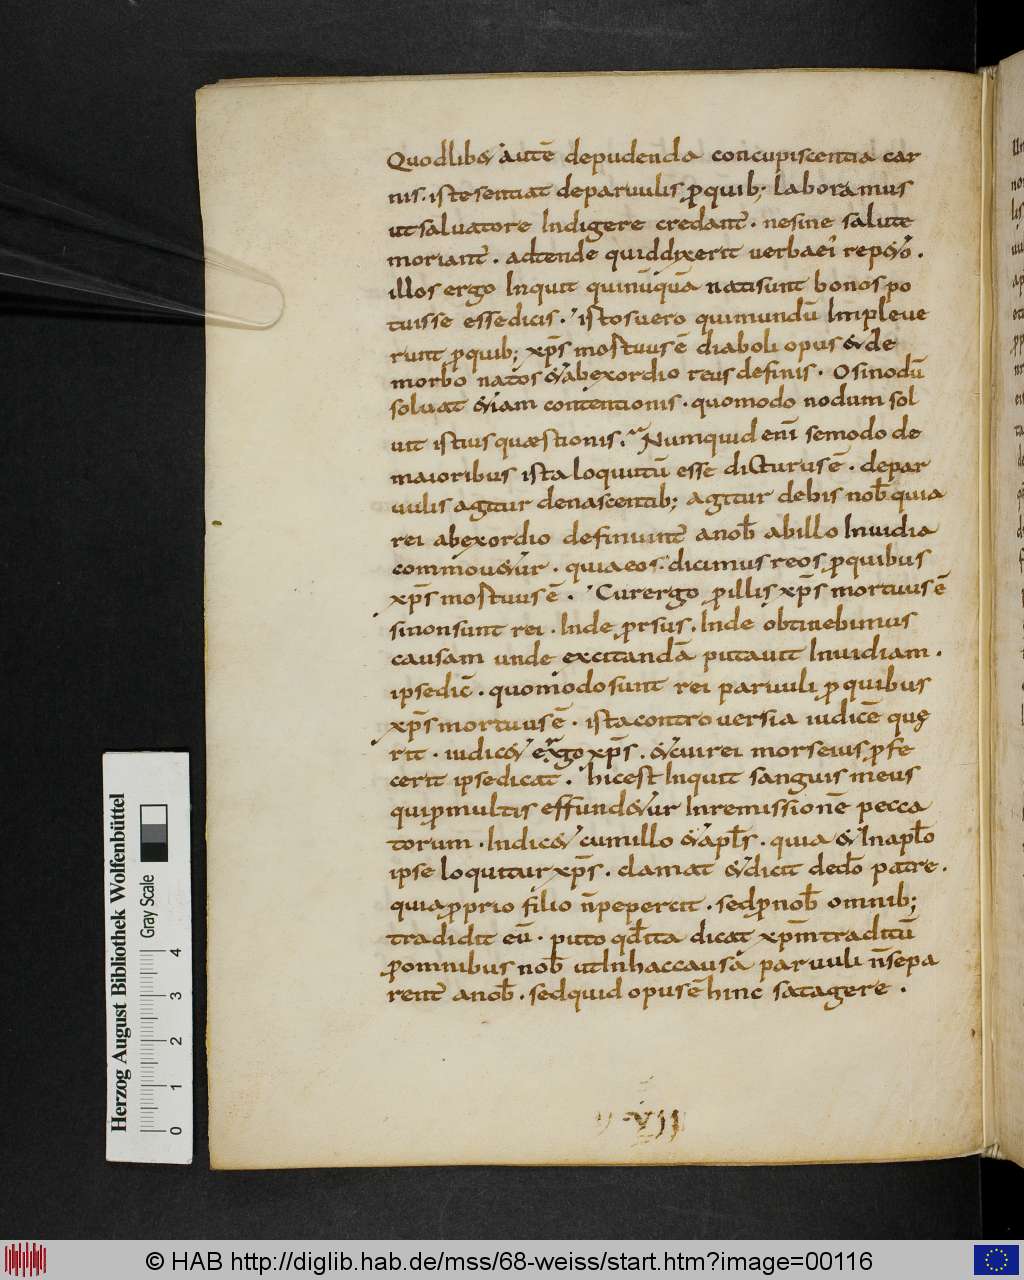 Quodlib& autē depudenda concupiscentia car
nis. istesentiat deparuulis ꝓquib; laboramus
utsaluatore Indigere credant̄. nesine salute
moriant̄. adtende quiddixerit uerbaei' rep&o.
illos ergo Inquit quinūquā natisunt bonos po
tuisse essedicis. istosuero quimundū Impleue
runt ꝓquib; xp̄s mortuusē diaboli opus &de
morbo natos &abexordio reusdefinis. Osinodū
soluat &iam contentionis. quomodo nodum sol
uit istiusquæstionis. Numquid enī semodo de
maioribus ista loquutū esse dicturusē. depar
uulis agitur denascentib; agitur debis nob̄ quia
rei abexordio definiunt̄ anob̄ abillo Inuidia
commou&ur. quiaeos. dicimus reos ꝓquibus
xp̄s mortuusē. Curergo ꝓillis xp̄s mortuusē
sinonsunt rei. Inde ꝓrsus. Inde obtinebimus
causam unde excitandā putauit Inuidiam.
ipsedic̄. quomodosunt rei paruuli ꝓquibus
xp̄s mortuusē. istacontrouersia iudicē quę
rit. iudic& ergo xp̄s. &cuirei morseius ꝓfe
cerit ipsedicat. hicest Inquit sanguis meus
quiꝓmultis effund&ur Inremissionē pecca
torum. Indic& cumillo &apl̄s. quia &Inapl̄o
ipse loquitur xp̄s. clamat &dicit dedō patre.
quiaꝓprio filio n̄pepercit. sedꝓnob̄ omnib;
tradidit eū. puto qđita dicat xp̄m traditū
ꝓomnibus nob̄ utInhaccausā paruuli n̄sepa
rent̄ anob̄. sedquid opusē hinc satagere.
VII
Herzog August Bibliothek Wolfenbüttel
Gray Scale
0 1 2 3 4
© HAB http://diglib.hab.de/mss/68-weiss/start.htm?image=00116